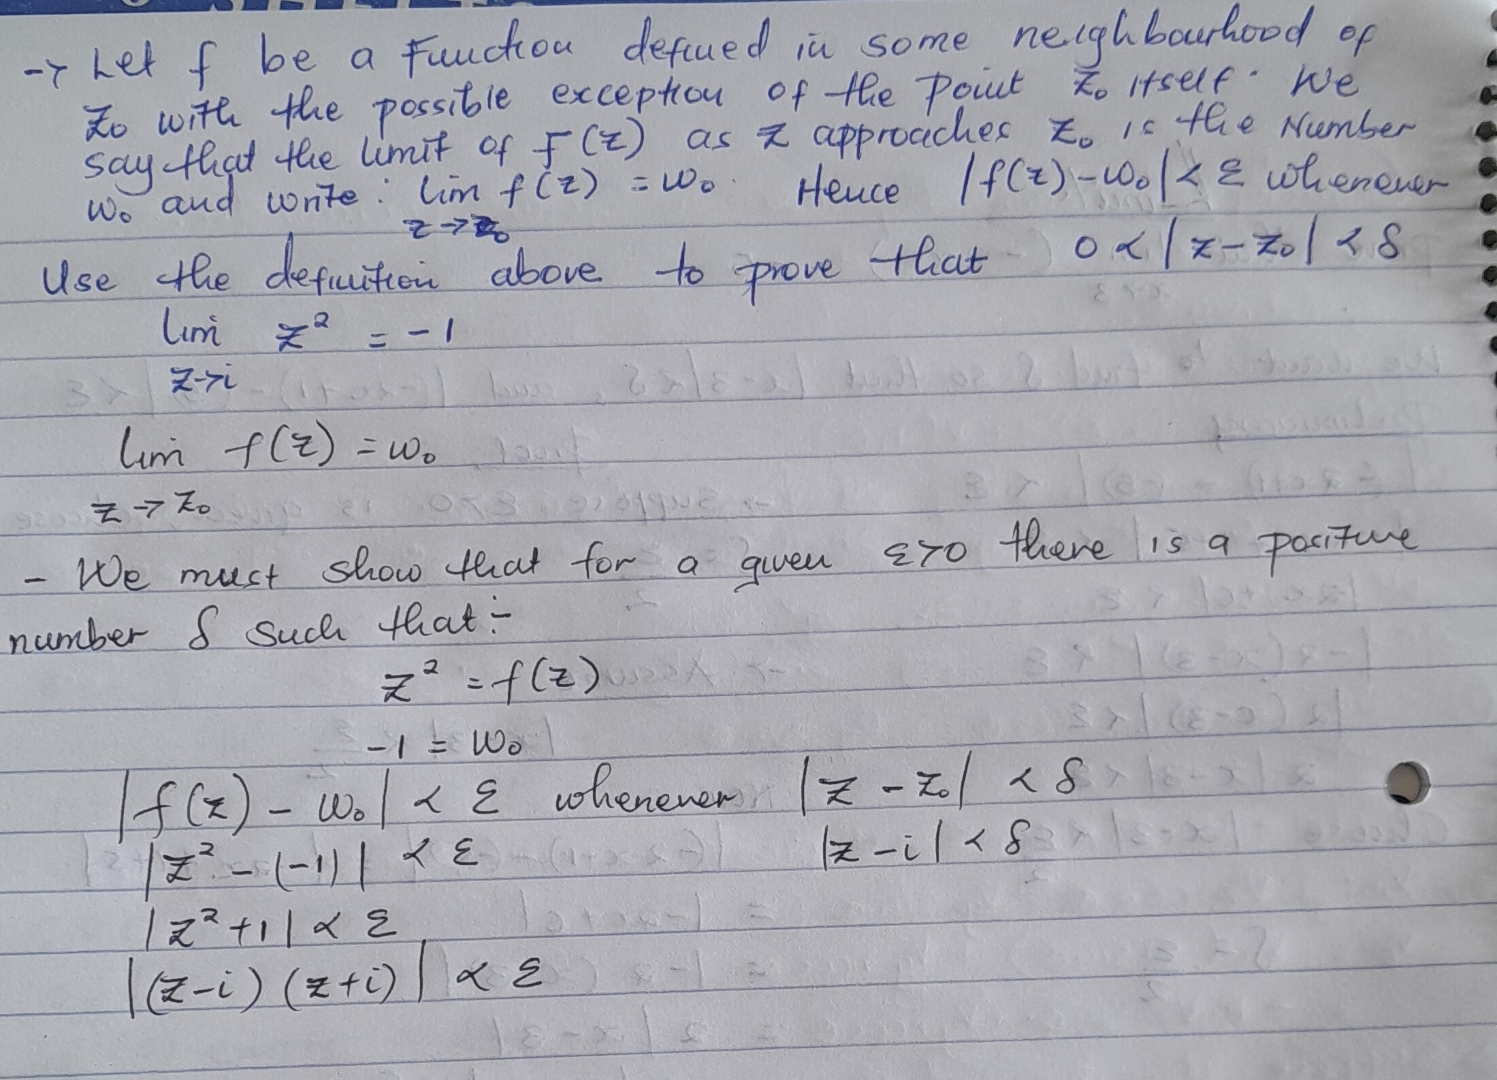 → Let f be a Function defined in some neighbourhood of
z₀ with the possible exception of the Point z₀ itself. We
say that the limit of f(z) as z approaches z₀ is the Number
w₀ and write: lim f(z) = w₀. Hence |f(z)-w₀| < ε whenever
z→z₀
Use the definition above to prove that 0 < |z-z₀| < δ
lim z² = -1
z→i
lim f(z) = w₀
z → z₀
- We must show that for a given ε>0 there is a positive
number δ such that:-
z² = f(z)
-1 = w₀
|f(z) - w₀| < ε whenever |z - z₀| < δ
|z² - (-1)| < ε |z - i| < δ
|z² + 1| < ε
|(z-i) (z+i)| < ε